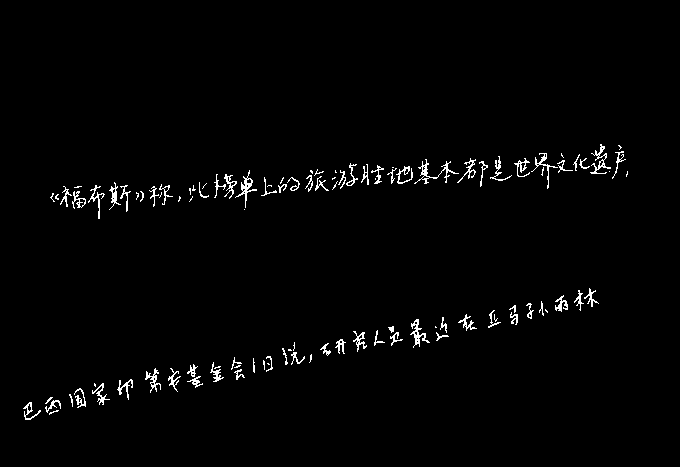 《福布斯》称,此榜单上的旅游胜地基本都是世界文化遗产,
巴西国家印第安基金会1日说,研究人员最近在亚马孙雨林